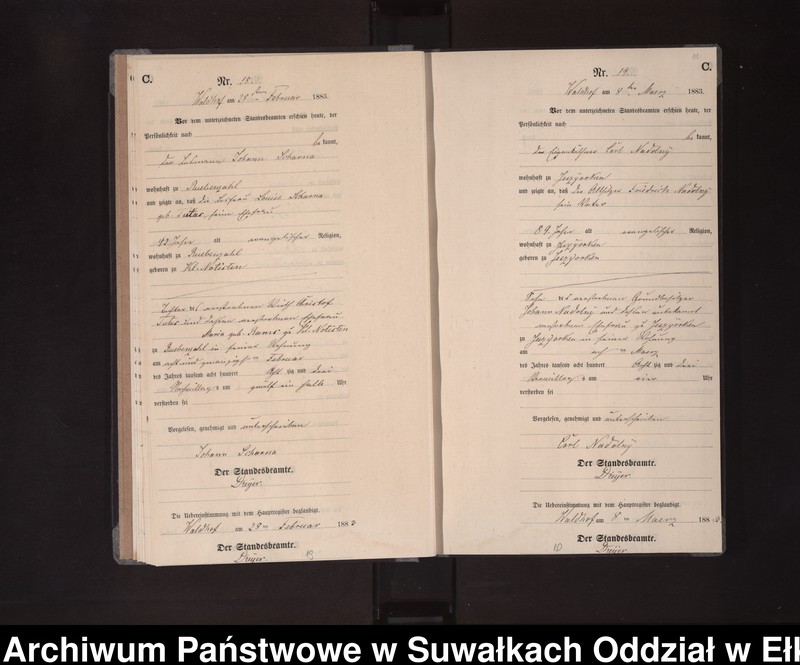 C.
Nr. 18.
Waldhof am 28ten Februar 1883.
Vor dem unterzeichneten Standesbeamten erschien heute, der
Persönlichkeit nach
be kannt,
Johann Scharna
wohnhaft zu Ruebenzahl
und zeigte an, daß die Louise Scharna
geb. seine Ehefrau
42 Jahre alt evangelischer Religion,
wohnhaft zu Ruebenzahl
geboren zu Kl. Notisten
Tochter des verstorbenen Wirth Christof
und dessen verstorbenen Ehefrau
Maria geb. zu Kl. Notisten
zu Ruebenzahl in seiner Wohnung
am acht und zwanzigsten Februar
des Jahres tausend acht hundert Acht zig und drei
Vormittags um zwölf ein halb Uhr
verstorben sei
Vorgelesen, genehmigt und unterschrieben
Johann Scharna
Der Standesbeamte.
Dreyer.
Die Uebereinstimmung mit dem Hauptregister beglaubigt.
Waldhof am 28ten Februar 1883
Der Standesbeamte.
Dreyer.
C.
Nr. 19.
Waldhof am 8ten Maerz 1883.
Vor dem unterzeichneten Standesbeamten erschien heute, der
Persönlichkeit nach
be kannt,
der Eigenkäthner Carl Nadolny
wohnhaft zu Jesziorken
und zeigte an, daß der Altsitzer Friedrich Nadolny
sein Vater
89 Jahre alt evangelischer Religion,
wohnhaft zu Jesziorken
geboren zu Jesziorken
Sohn des verstorbenen Grundbesitzer
Johann Nadolny und dessen unbekannt
verstorbenen Ehefrau zu Jesziorken
zu Jesziorken in seiner Wohnung
am acht ten Maerz
des Jahres tausend acht hundert Acht zig und drei
Vormittags um Uhr
verstorben sei
Vorgelesen, genehmigt und unterschrieben
Carl Nadolny
Der Standesbeamte.
Dreyer.
Die Uebereinstimmung mit dem Hauptregister beglaubigt.
Waldhof am 8ten Maerz 1883.
Der Standesbeamte.
Dreyer.
Archiwum Państwowe w Suwałkach Oddział w Ełk